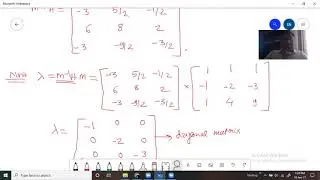 Microsoft Whiteboard
M⁻¹H = [ -3 5/2 -1/2
6 8 2
-3 -9/2 -3/2 ]
Now λ = M⁻¹H M = [ -3 5/2 -1/2 ] × [ 1 1 1 ]
[ 6 8 2 ] [ -1 -2 -3 ]
[ -3 -9/2 -3/2 ] [ 1 4 9 ]
λ = [ -1 0 0
0 -2 0 → diagonal matrix
0 0 -3 ]